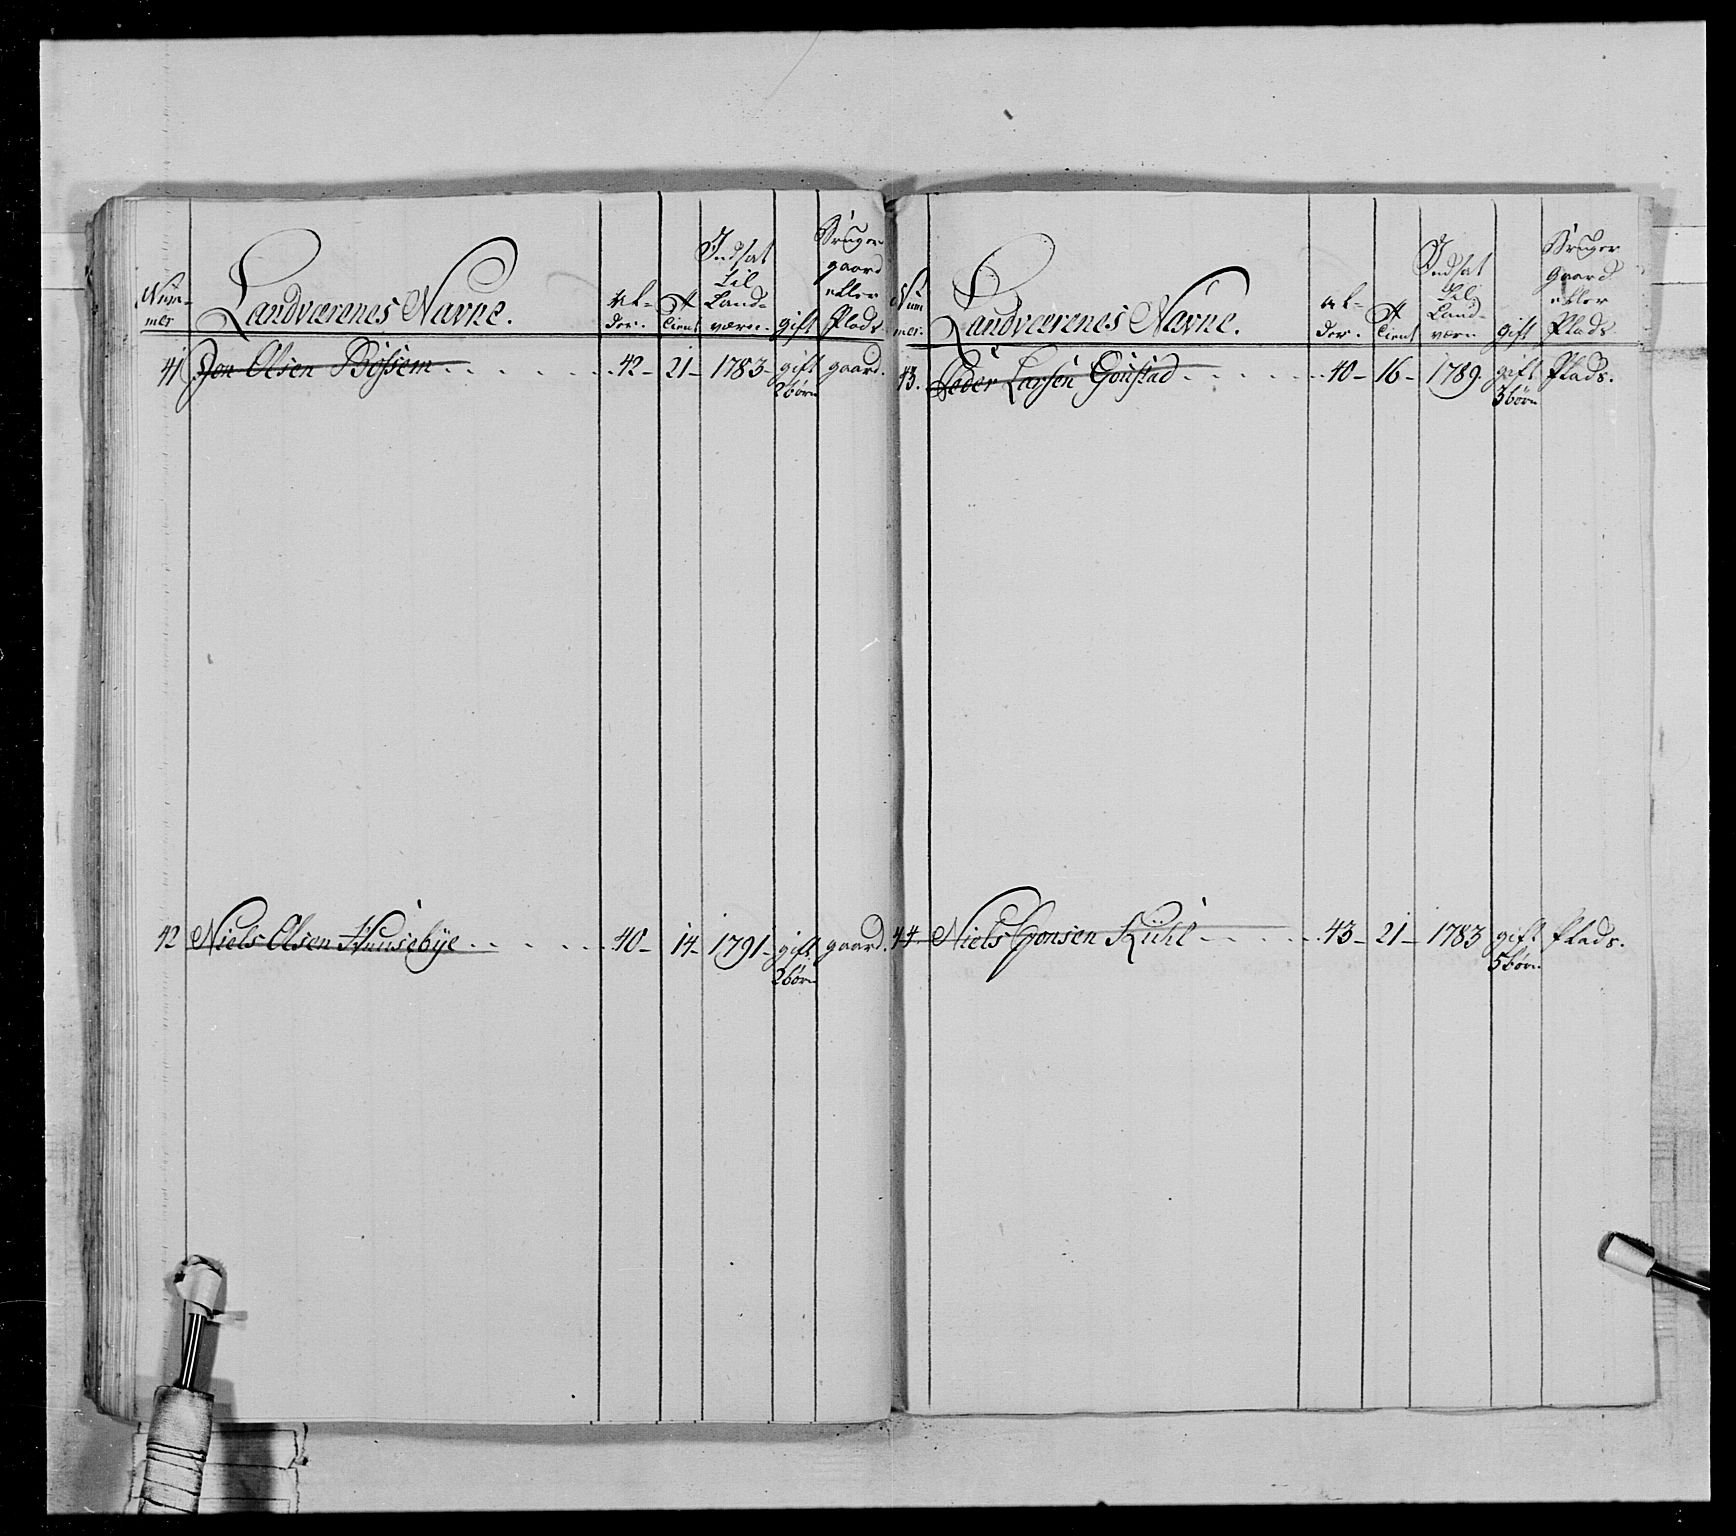 Num-
mer
Landværenes Navne.
Al-
der.
Tient
Indsat
til
Land-
værn.
gift
Bruger
gaard
eller
Plads.
41 Jon Olsen Bössem 42 - 21 - 1783 - gift gaard.
2 börn
42 Niels Olsen Huusebÿe 40 - 14 - 1791 - gift gaard.
2 börn
Num
mer.
Landværenes Navne.
Al-
der.
Tient
Indsat
til
Land-
værn
gift
Bruger
Gaard
eller
Plads.
43. Peder Larsen Goustad 40 - 16 - 1789. gift Plads.
3 börn
44. Niels Jonsen Kühl 43 - 21 - 1783 gift Plads.
5 börn